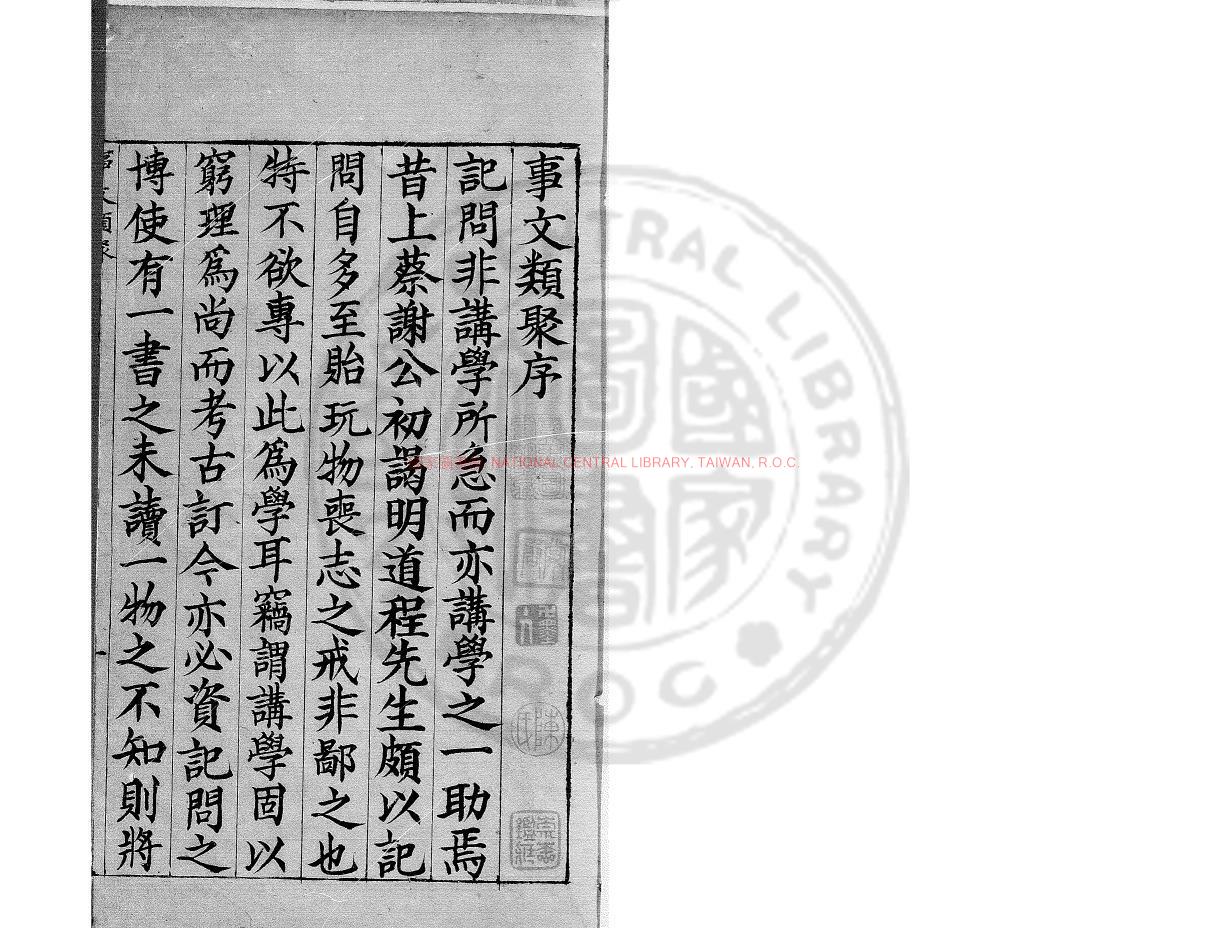 事文類聚序
記問非講學所急而亦講學之一助焉
昔上蔡謝公初謁明道程先生頗以記
問自多至貽玩物喪志之戒非鄙之也
特不欲專以此爲學耳竊謂講學固以
窮理爲尚而考古訂今亦必資記問之
博使有一書之未讀一物之不知則將
NATIONAL CENTRAL LIBRARY, TAIWAN, R.O.C.